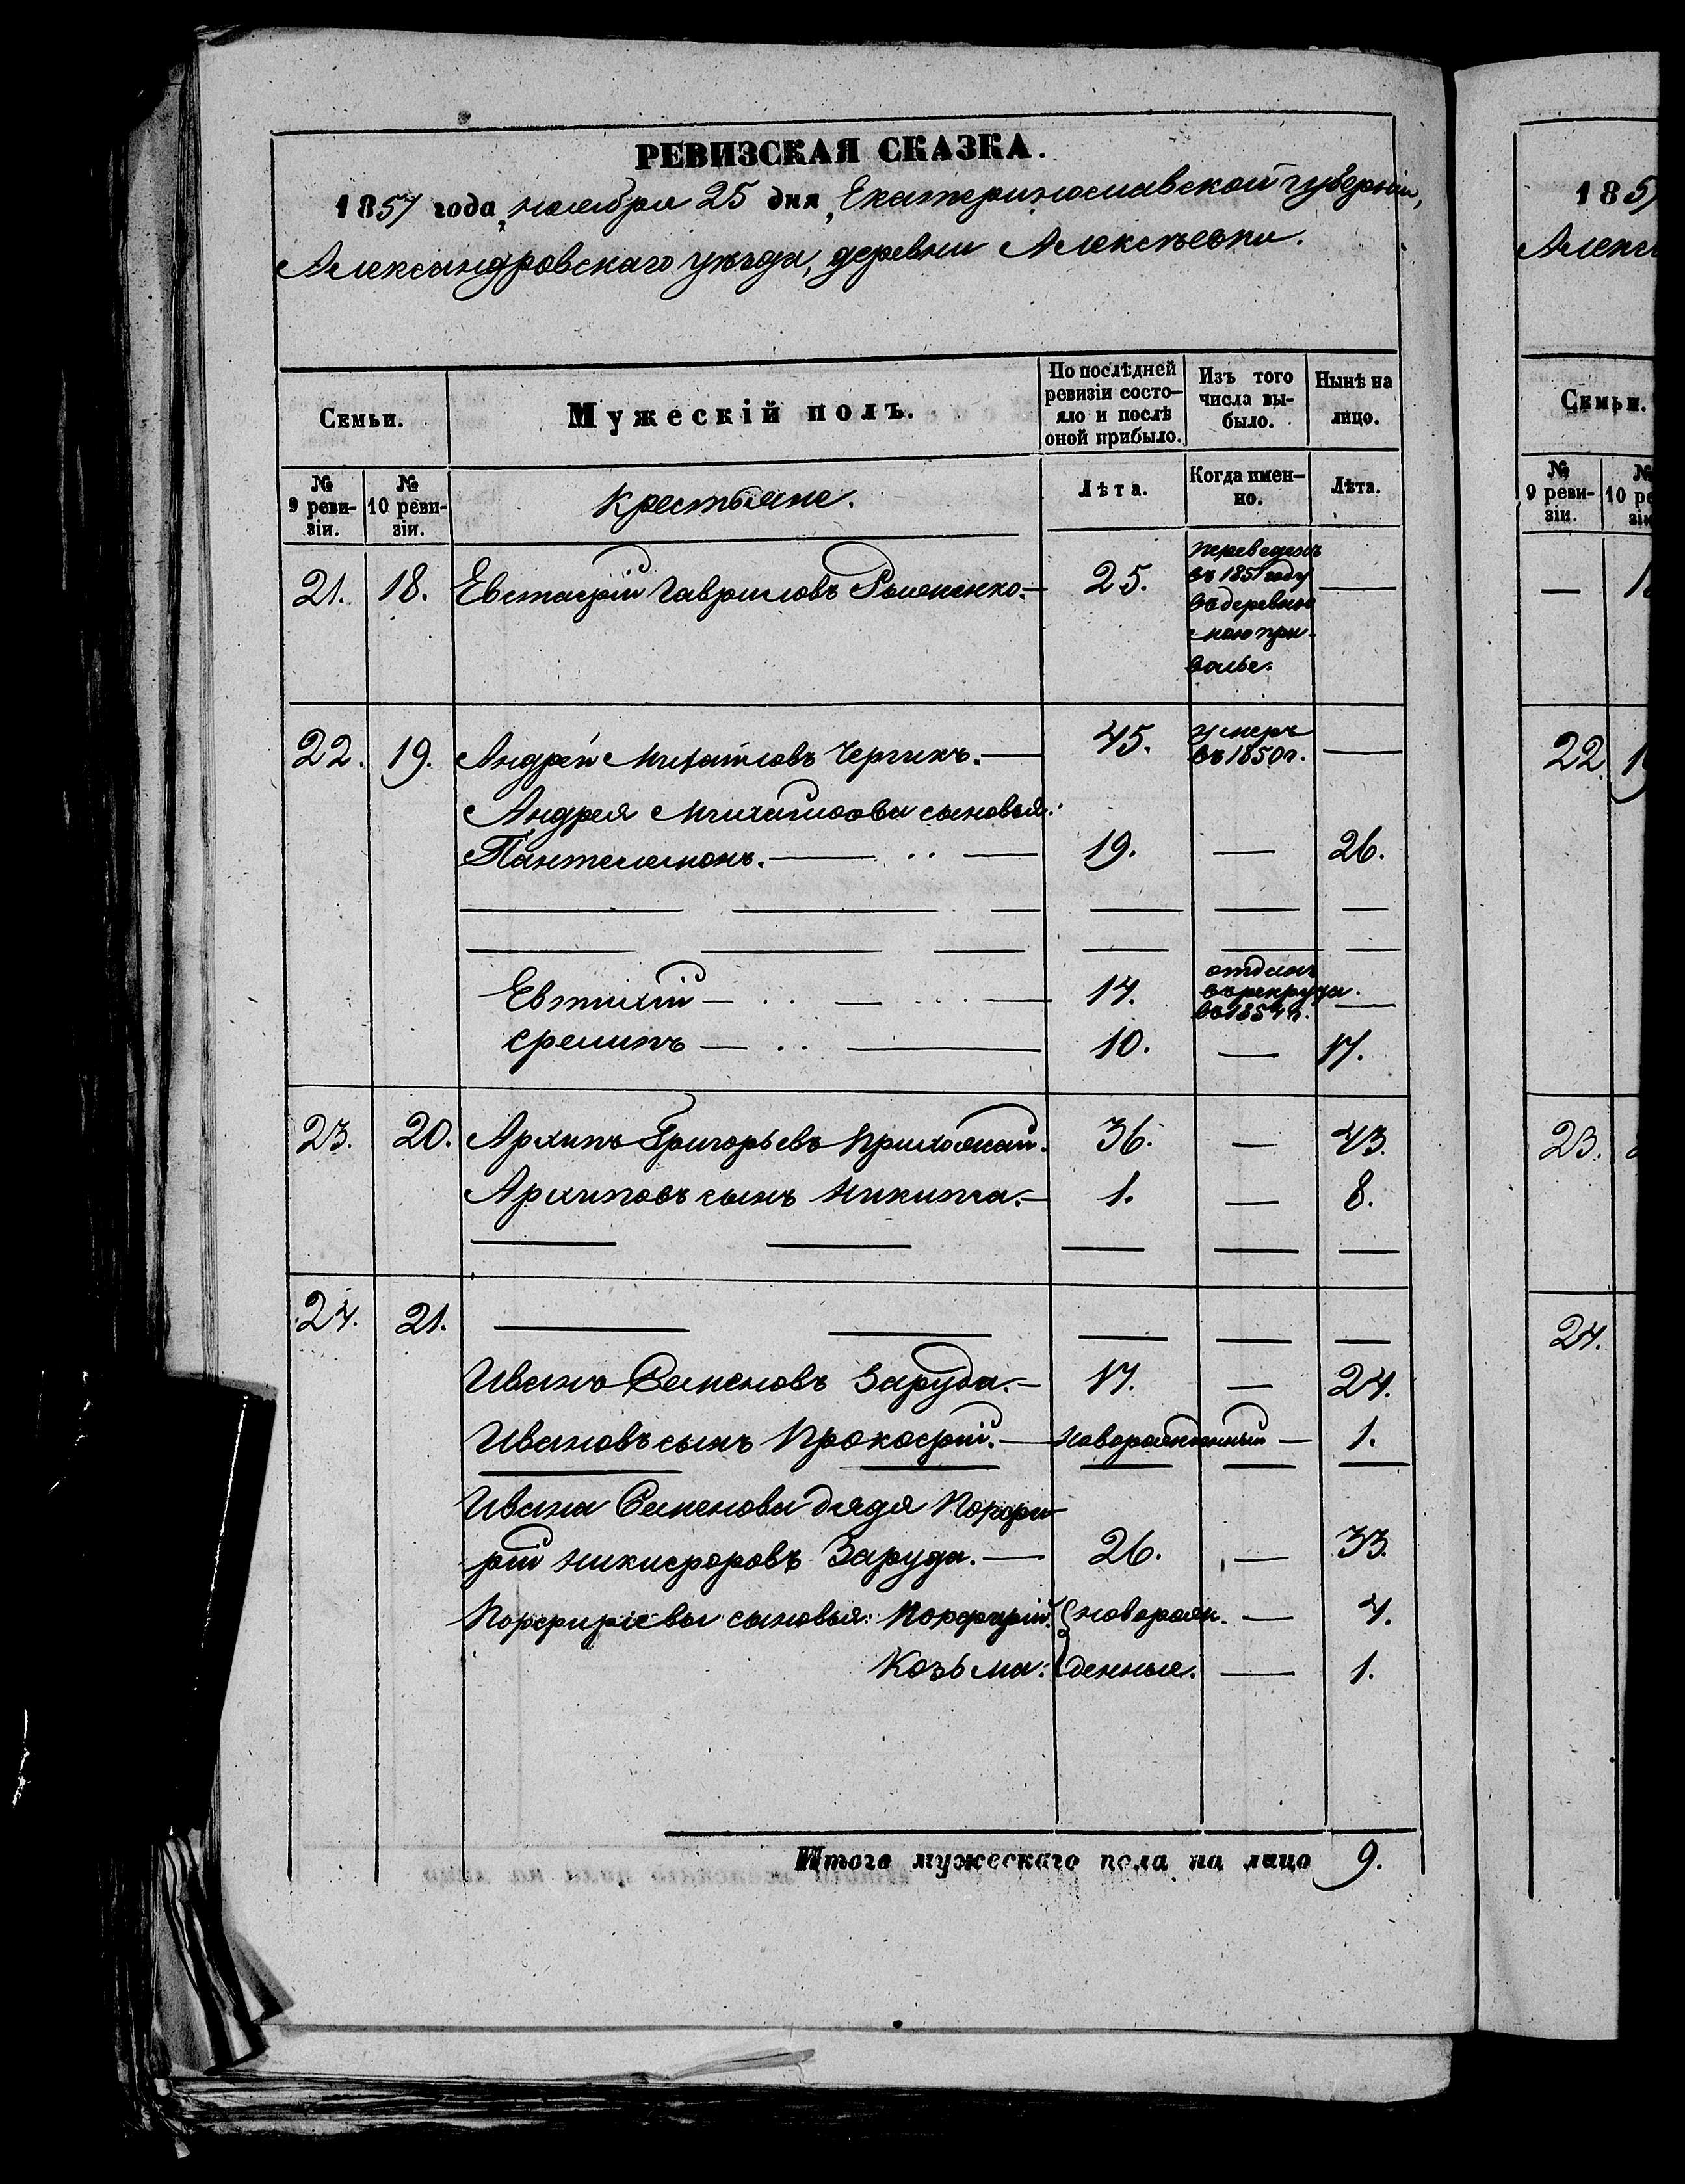 РЕВИЗСКАЯ СКАЗКА.
1857 года, ноября 25 дня, Екатеринославской губерніи,
Александровскаго уѣзда, деревни Алексѣевки.
Семьи.
Мужескій полъ.
По послѣдней ревизіи состо-
яло и послѣ оной прибыло.
Изъ того числа вы-
было.
Нынѣ на лицо.
№ 9 реви-
зіи.
№ 10 реви-
зіи.
Крестьяне.
Лѣта.
Когда имен-
но.
Лѣта.
21. 18. Евстафій Гавриловъ — 25. переведенъ —
въ 1851 году
въ деревню
мою При-
волье.
22. 19. Андрей Михайловъ — 45. умеръ —
въ 1850 г.
Андрея Михайлова сыновья:
Пантелемонъ. — 19. — 26.
Евтихій — 14. отданъ —
въ рекруты
въ 1854 г.
Филипъ — 10. — 17.
23. 20. Архипъ Григорьевъ 36. — 43.
Архиповъ сынъ Никита. — 1. — 8.
24. 21.
Иванъ Семеновъ Заруда. — 17. — 24.
Ивановъ сынъ Прокофій. — новорожденный — 1.
Ивана Семенова дядя Порфи-
рій Никифоровъ Заруда. — 26. — 33.
Порфиріевы сыновья: Порфирій. новорож- — 4.
Козьма: денные. — 1.
Итого мужескаго пола на лицо 9.
185
Алекс
Семьи.
№ 9 реви-
зіи.
№ 10 ре
зіи
— 1
22. 19
23.
24.